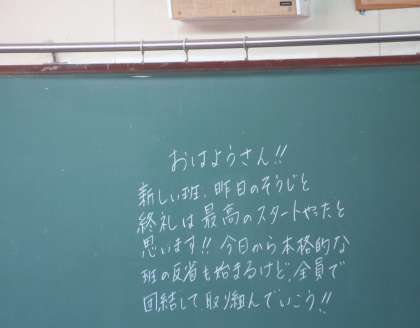 おはようさん!!
新しい班、昨日のそうじと
終礼は最高のスタートやったと
思います!! 今日から本格的な
班の反省も始まるけど、全員で
団結して取り組んでいこう!!